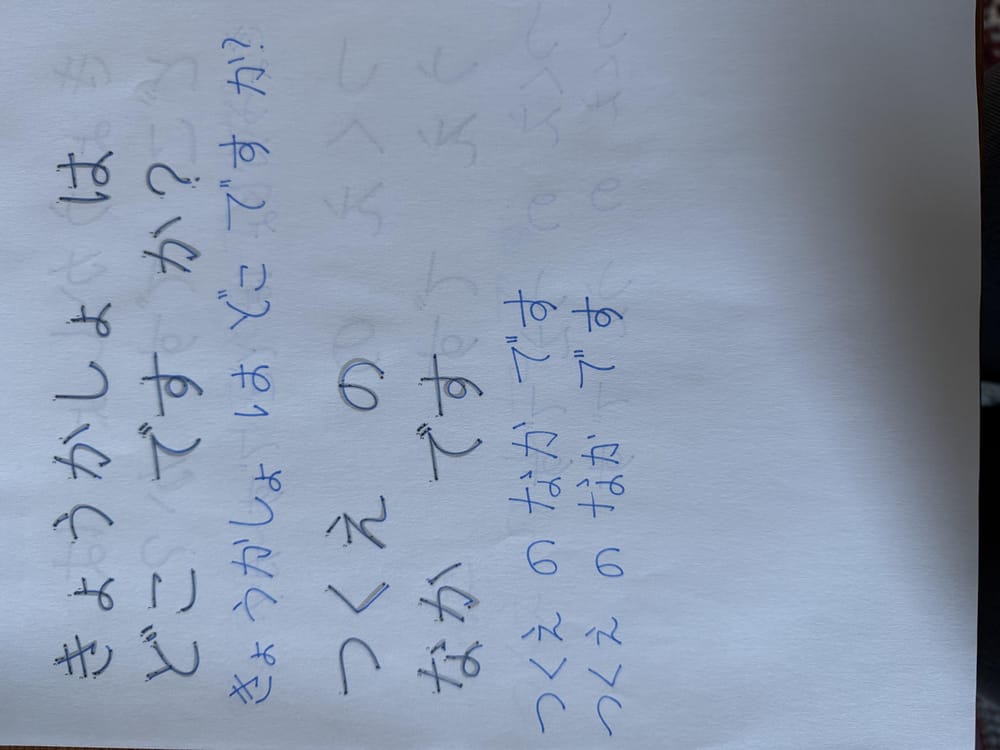 きょうかしょ は
どこ です か?
きょうかしょ は どこ です か?
つくえ の
なか です
つくえ の なか です
つくえ の なか です